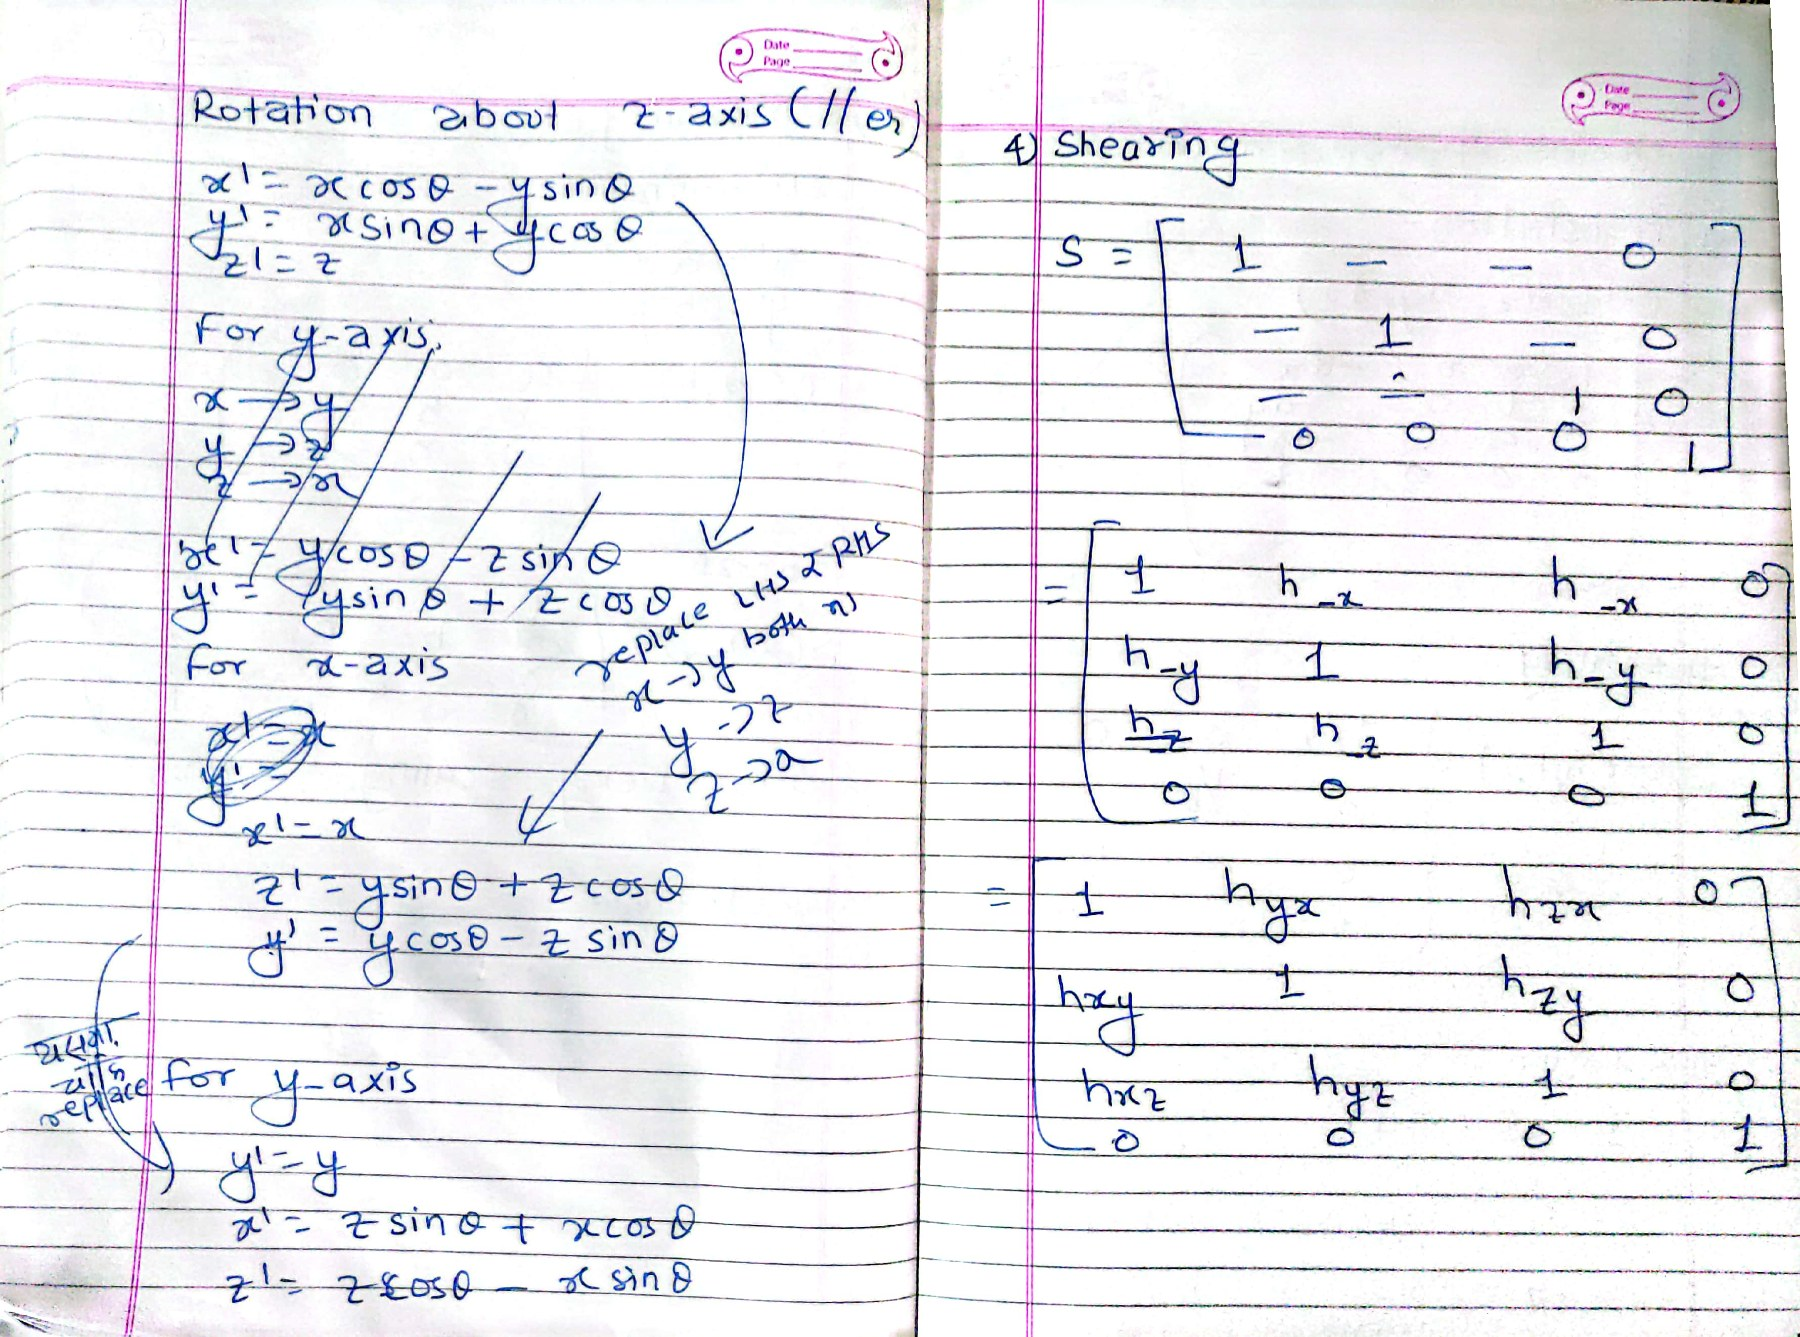 Date
Page
Rotation about z-axis (//er)
x' = x cosθ - y sinθ
y' = x sinθ + y cosθ
z' = z
For y-axis.
x → y
y → z
z → x
x' = y cosθ - z sinθ
y' = y sinθ + z cosθ
replace LHS & RHS
both
x → y
y → z
z → x
for x-axis
x' = x
y' =
x' = x
z' = y sinθ + z cosθ
y' = y cosθ - z sinθ
replace
for y-axis
y' = y
x' = z sinθ + x cosθ
z' = z cosθ - x sinθ
Date
Page
4) Shearing
S = [ 1 — — 0
— 1 — 0
— — 1 0
0 0 0 1 ]
= [ 1 h_x h_x 0
h_y 1 h_y 0
h_z h_z 1 0
0 0 0 1 ]
= [ 1 hyx hzx 0
hxy 1 hzy 0
hxz hyz 1 0
0 0 0 1 ]